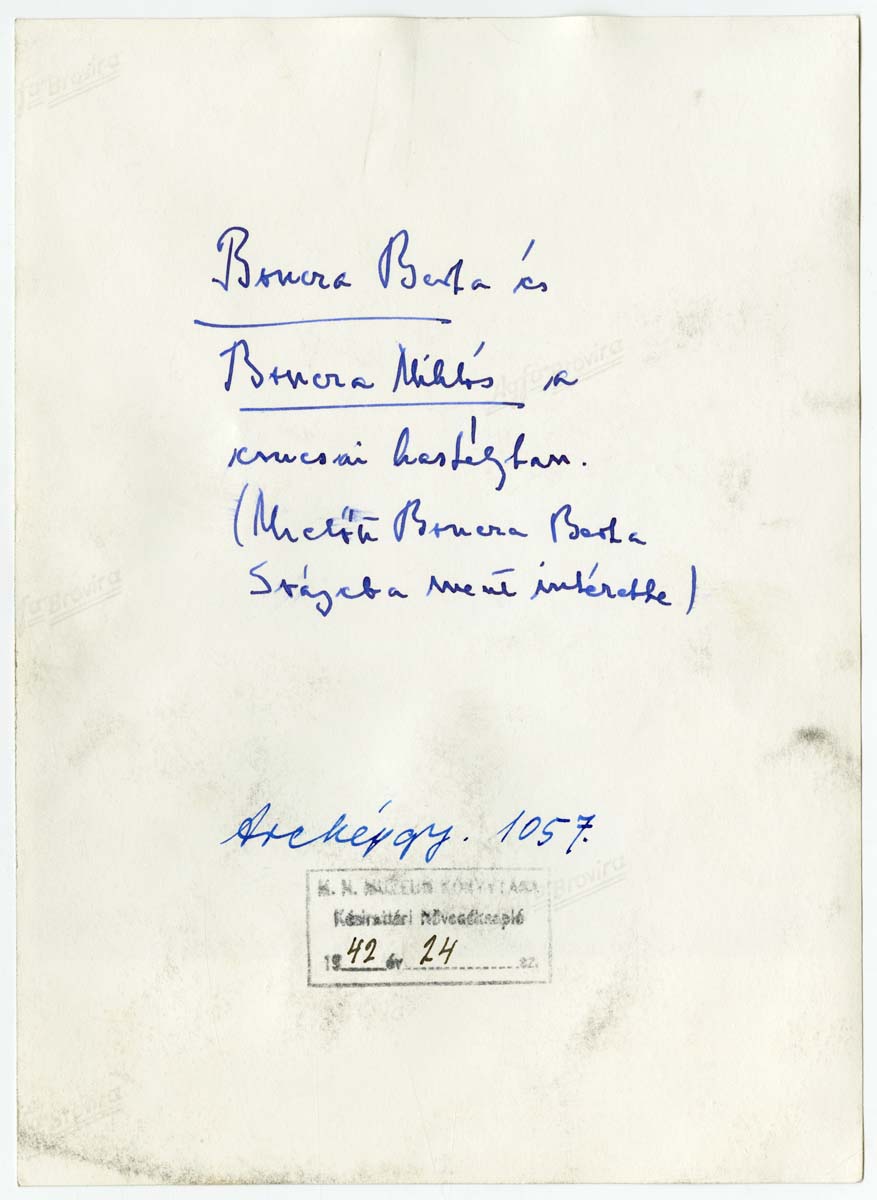 Boncza Berta és
Boncza Miklós a
csucsai kastélyban.
(Mielőtt Boncza Berta
Svájcba ment intézetbe)
Arcképgy. 1057.
M. N. MUZEUM KÖNYVTÁRA
Kézirattári Növedéknapló
1942 év 24 sz.